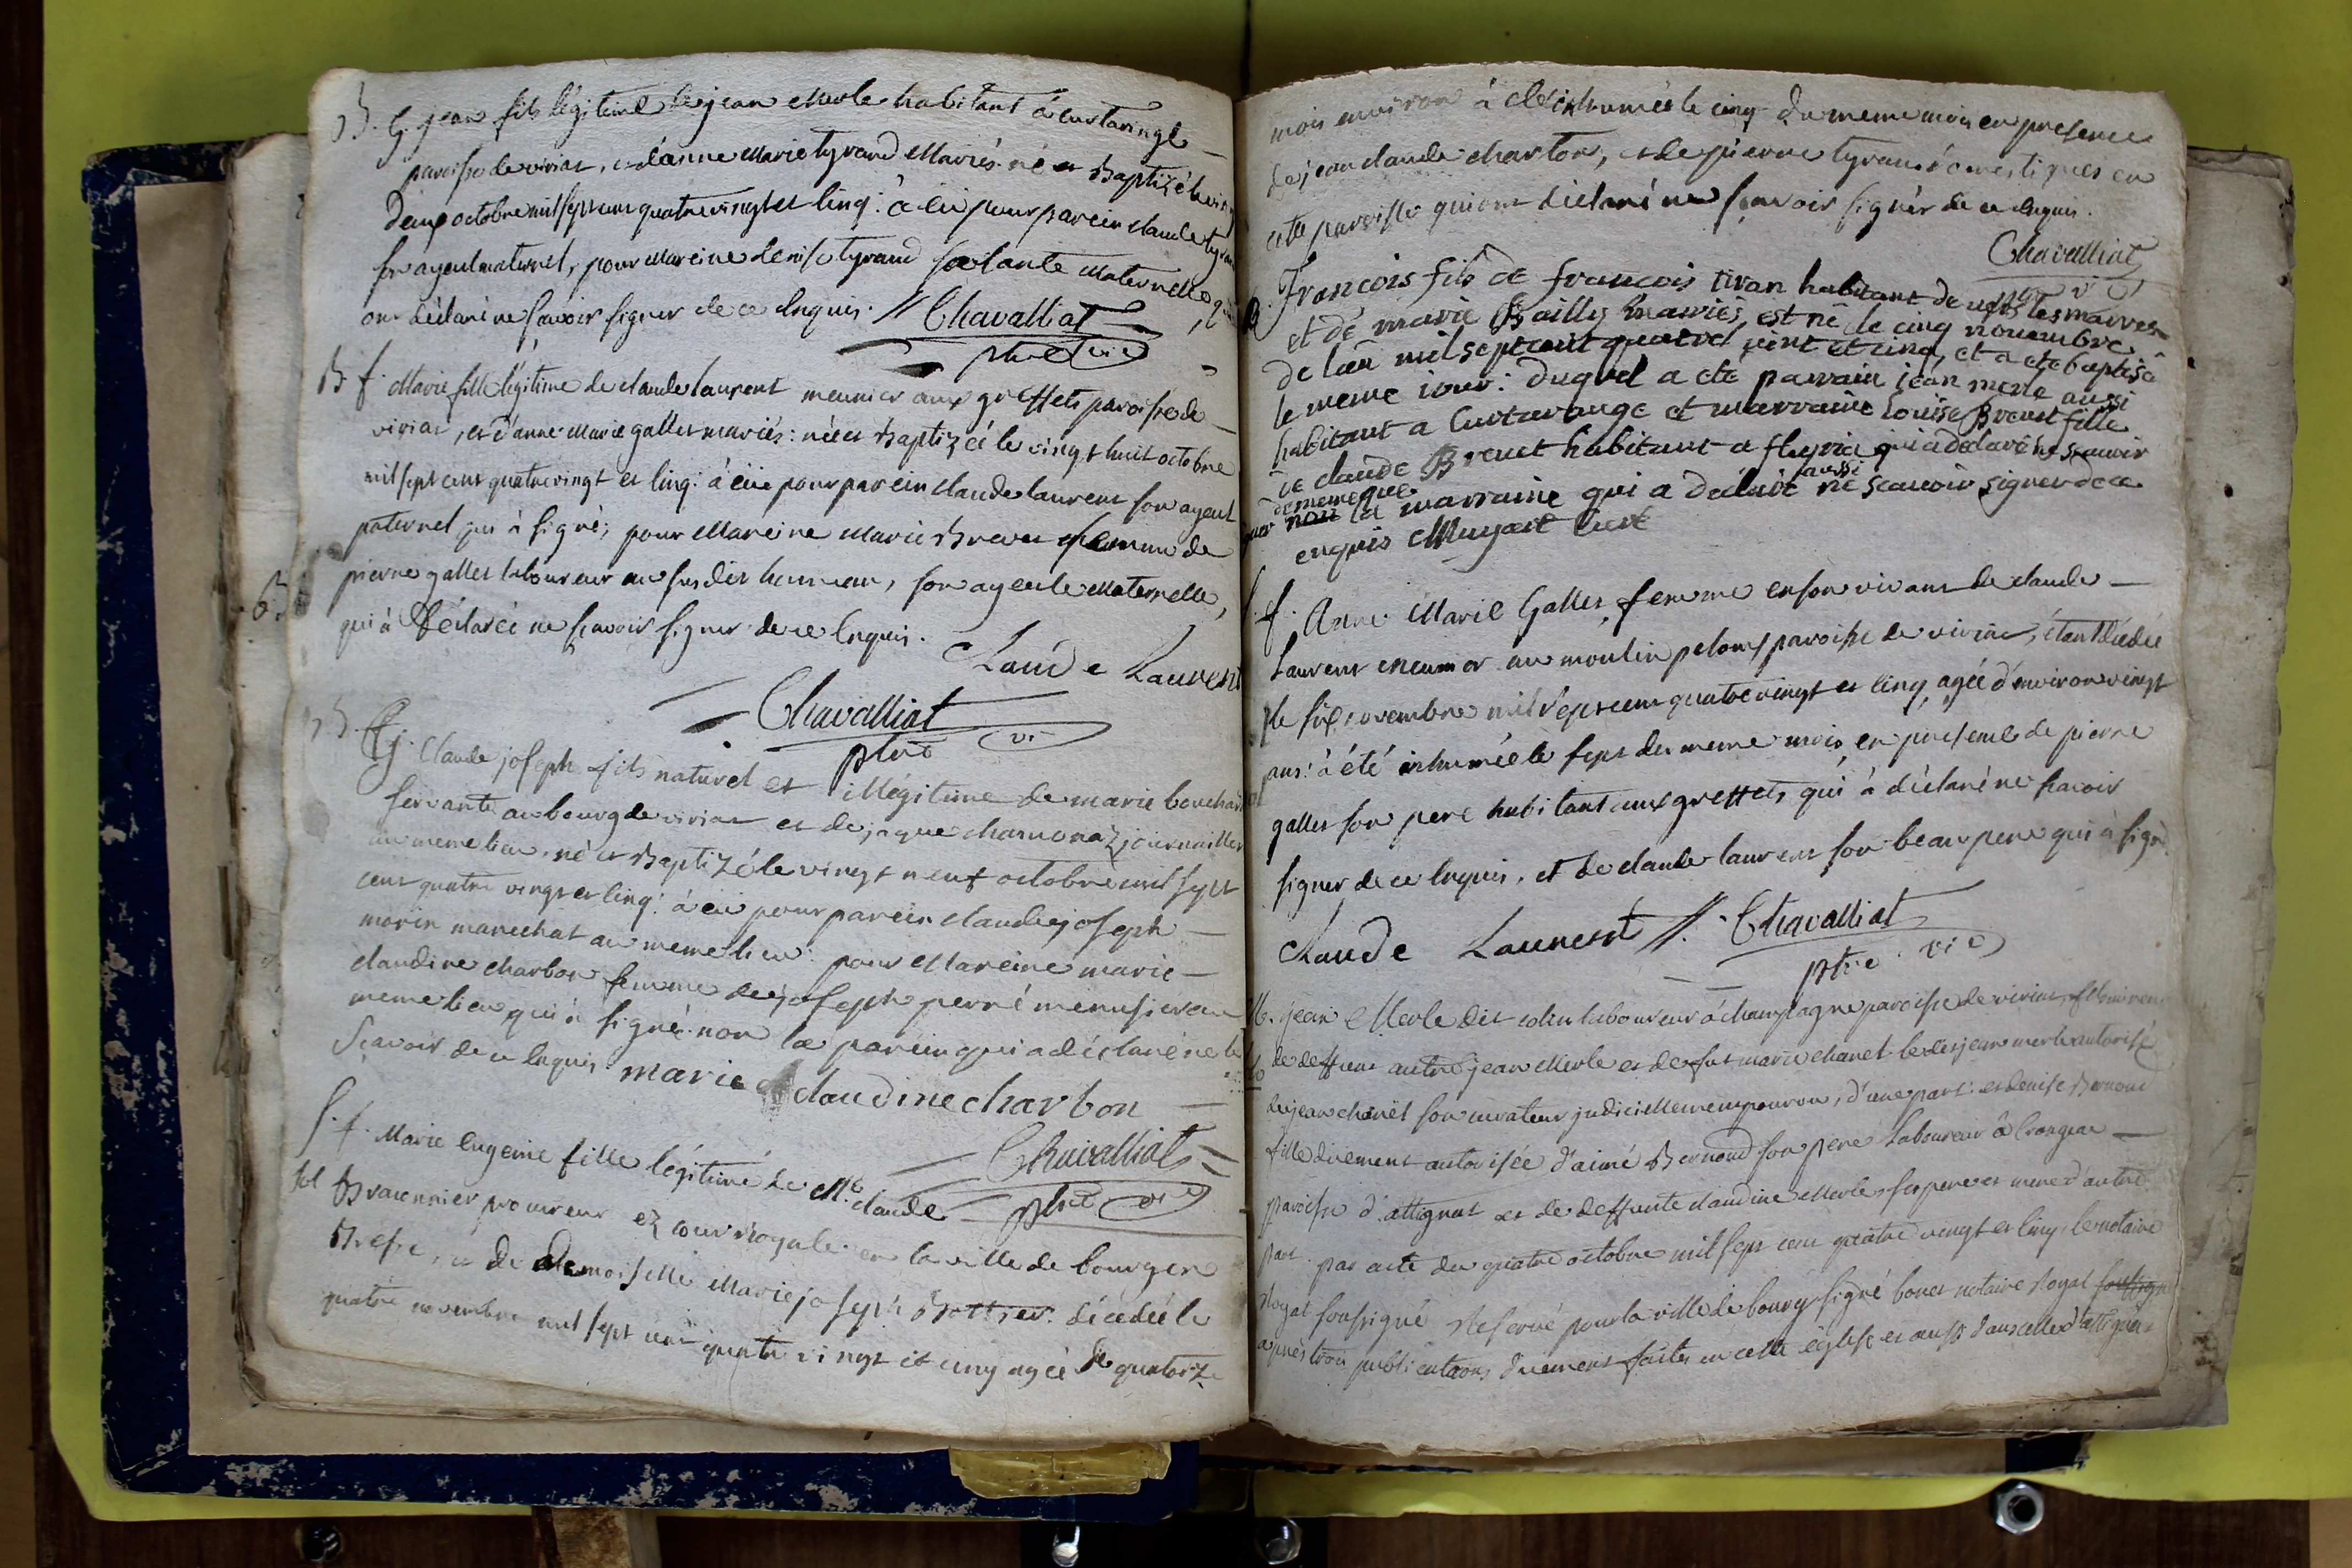 B. g. jean fils légitime de jean Merle habitant à curtaringe
paroisse de viriat, et d'anne Marie tyrand Mariés né et Baptizé le vingt
deux octobre mil sept cens quatre vingt et cinq: à eü pour parein claude tyrand
son ayeul maternel, pour Mareine denise tyrand sa tante Maternelle, qui
ont déclaré ne savoir signer de ce Enquis. // Chavalliat
ptre vic
B f. Marie fille légitime de claude laurent meunier aux greffets paroisse de
viriat, et d'anne Marie gallet mariés: née et Baptizée le vingt huit octobre
mil sept cens quatre vingt et cinq: à eüe pour parein claude laurent son ayeul
paternel qui à signé; pour Mareine Marie Brevet femme de
pierre gallet laboureur au susdit hameau, son ayeule Maternelle,
qui à déclaré ne sçavoir signer de ce Enquis.
Claude Laurent
Chavalliat
ptre vic
B. G. Claude joseph fils naturel et illégitime de marie bouchard
servante au bourg de viriat et de jaque chamonaz journaillier
au meme lieu. né et Baptizé le vingt neuf octobre mil sept
cens quatre vingt et cinq: à eü pour parein claude joseph
morin marechal au meme lieu: pour Mareine marie
claudine charbon femme de joseph perré menusier au
meme lieu qui à signé non le parein qui a déclaré ne le
Sçavoir de ce Enquis. marie claudine charbon
Chavalliat
ptre vic
S. f. Marie Eugenie fille légitime de Me. claude
Braconnier procureur ez cour Royale en la ville de bourg en
Bresse, et de demoiselle Marie joseph Bottier. décédée le
quatre novembre mil sept cens quatre vingt et cinq agée de quatorze
mois environ à été inhumée le cinq du meme mois en presence
de jean claude charton, et de pierre tyrand domestiques en
cette paroisse qui ont déclaré ne sçavoir signer de ce Enquis.
Chavalliat
B. François fils de francois tiran habitant de vers les marres
et de marie Bailly mariés, est né le cinq nouembre
de l'an mil sept cent quatre vint et cinq, et a ete baptisé
le meme jour: duquel a ete parrain jean merle aussi
habitant a Curtaringe et marraine Louise Brevet fille
de claude Brevet habitant a fleyria qui a declaré ne scavoir
de meme que
signer non la marraine qui a declaré aussi ne scauoir signer de ce
enquis Muyard Curé
S. f. Anne Marie Gallet, femme en son vivant de claude
Laurent meunier au moulin pelou paroisse de viriat, étant décédée
le six novembre mil sept cens quatre vingt et cinq, agée d'environ vingt
ans: à été inhumée le sept du meme mois, en presence de pierre
gallet son pere habitant aux greffets, qui à déclaré ne savoir
signer de ce Enquis, et de claude laurent son beau pere qui à signé.
Claude Laurent //. Chavalliat
ptre. vic
M. jean Merle dit colin laboureur à champagne paroisse de viriat, fils mineur
de deffunt autre jean Merle et de fut marie chanel. le dit jean merle autorisé
de jean chanel son curateur judiciellement pourvu, d'une part: et denise Bernoud
fille düement autorisée d'aimé Bernoud son pere Laboureur à Crangeat
paroisse d'attignat et de deffunte claudine Merle, ses pere et mere d'autre
part. par acte du quatre octobre mil sept cens quatre vingt et cinq, le notaire
Royal soussigné Reservé pour la ville de bourg signé bouet notaire Royal soussigné
après trois publications düement faites en cette église et aussi dans celle d'attignat